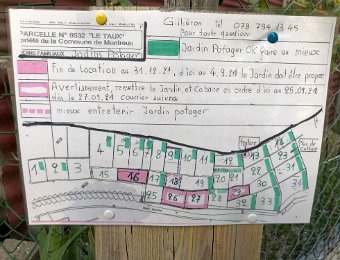 Gilliéron tel 078 794 13 45
Pour toute question
PARCELLE N° 8532 "LE TAUX"
priété de la Commune de Montreux
Jardins Potager
Jardin Potager OK faire au mieux
Fin de Location au 31.12.21, d'ici au 4.9.21 le Jardin doit être propre
Avertissement, remettre le Jardin et Cabane en ordre d'ici au 25.09.21
du 27.01.21 courrier suivra
mieux entretenir Jardin potager
1 2 3 4 5 6 7 8 9 10 11 12 13 14
15 16 17 18 19 20 21 22 23 24
25 26 27 28 29 30 31 32 33 34